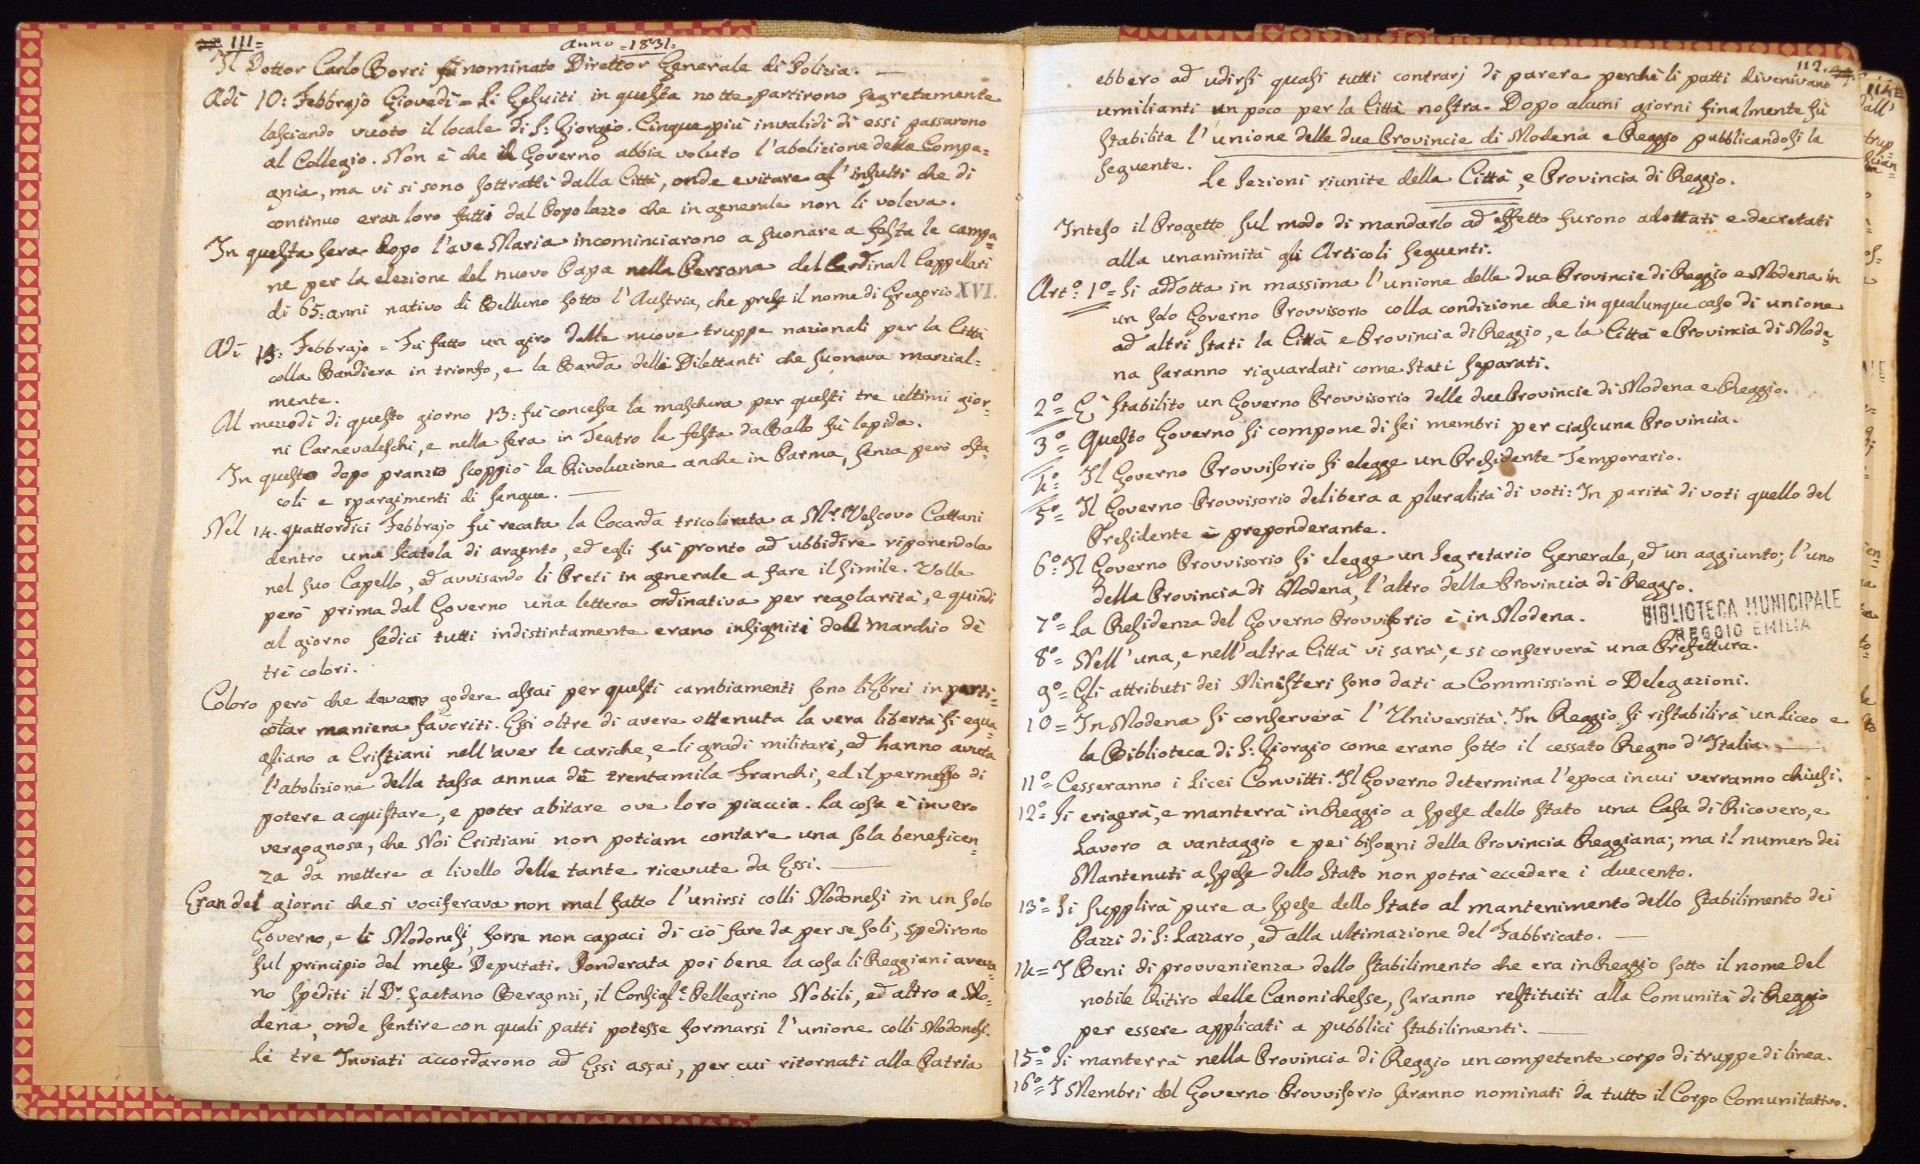 111=
Anno =1831=
Il Dottor Carlo Borri fu nominato Direttor Generale di Polizia. —
Adì 10: Febbrajo Giovedì = Li Gesuiti in questa notte partirono segretamente
lasciando vuoto il locale di S: Giorgio. Cinque più invalidi di essi passarono
al Collegio. Non è che il Governo abbia voluto l'abolizione della Compa=
gnia, ma vi si sono sottratti dalla Città, onde evitare gl'insulti che di
continuo eran loro fatti dal Popolazzo che in generale non li voleva.
In questa sera dopo l'ave Maria incominciarono a suonare a festa le campa=
ne per la elezione del nuovo Papa nella Persona del Cardinal Cappellari
di 65: anni nativo di Belluno sotto l'Austria, che prese il nome di Gregorio XVI.
Adì 13: Febbrajo = Fu fatto un giro dalle nuove truppe nazionali per la Città
colla Bandiera in trionfo, e la Banda delli Dilettanti che suonava marzial=
mente.
Al mezzodì di questo giorno 13: fu concessa la maschera per questi tre ultimi gior=
ni Carnevaleschi, e nella sera in Teatro la festa da Ballo fu lepida.
In questo dopo pranzo scoppiò la Rivoluzione anche in Parma, senza però osta=
coli e spargimenti di sangue. —
Nel 14. quattordici Febbrajo fu recata la Cocarda tricolorata a Mr. Vescovo Cattani
dentro una scatola di argento, ed egli fu pronto ad ubbidire riponendola
nel suo Capello, ed avvisando li Preti in generale a fare il simile. Volle
però prima dal Governo una lettera ordinativa per regolarità, e quindi
al giorno sedici tutti indistintamente erano insigniti dell marchio dè
trè colori.
Coloro però che devano godere assai per questi cambiamenti sono li Ebrei in parti=
colar maniera favoriti. Essi oltre di avere ottenuta la vera libertà si egua=
gliano a Cristiani nell'aver le cariche, e li gradi militari, ed hanno avuta
l'abolizione della tassa annua di trentamila Franchi, ed il permesso di
potere acquistare, e poter abitare ove loro piaccia. La cosa è invero
vergognosa, che Noi Cristiani non potiam contare una sola beneficen=
za da mettere a livello delle tante ricevute da Essi. —
Eran del giorni che si vociferava non mal fatto l'unirsi colli Modonesi in un solo
Governo, e li Modonesi, forse non capaci di ciò fare da per se soli, spedirono
sul principio del mese Deputati. Ponderata poi bene la cosa li Reggiani aveva=
no spediti il Dr. Gaetano Beragnzi, il Consigl.e Pellegrino Nobili, ed altro a Mo=
dena, onde sentire con quali patti potesse formarsi l'unione colli Modonesi.
Li trè Inviati accordarono ad Essi assai, per cui ritornati alla Patria
112.
ebbero ad udirsi quasi tutti contrarj di parere perchè li patti divenivano
umilianti un poco per la Città nostra. Dopo alcuni giorni finalmente fù
stabilita l'unione delle due Provincie di Modena e Reggio pubblicandosi la
seguente.
Le Sezioni riunite della Città, e Provincia di Reggio.
Inteso il Progetto sul modo di mandarlo ad effetto furono adottati e decretati
alla unanimità gli Articoli seguenti.
Arto. 1o= Si addotta in massima l'unione delle due Provincie di Reggio e Modena in
un solo Governo Provvisorio colla condizione che in qualunque caso di unione
ad altri stati la Città e Provincia di Reggio, e la Città e Provincia di Mode=
na saranno riguardati come stati separati.
2o= E' stabilito un Governo Provvisorio delle due Provincie di Modena e Reggio.
3o= Questo Governo si compone di sei membri per ciascuna Provincia.
4o= Il Governo Provvisorio si elegge un Presidente Temporario.
5o= Il Governo Provvisorio delibera a pluralità di voti: In parità di voti quello del
Presidente è preponderante.
6o= Il Governo Provvisorio si elegge un Segretario Generale, ed un aggiunto; l'uno
della Provincia di Modena, l'altro della Provincia di Reggio.
7o= La Residenza del Governo Provvisorio è in Modena.
8o= Nell'una, e nell'altra Città vi sarà, e si conserverà una Prefettura.
9o= Gli attributi dei Ministeri sono dati a Commissioni o Delegazioni.
10= In Modena si conserverà l'Università. In Reggio si ristabilirà un Liceo e
la Biblioteca di S: Giorgio come erano sotto il cessato Regno d'Italia. —
11o= Cesseranno i Licei Convitti. Il Governo determina l'epoca in cui verranno chiusi.
12o= Si erigerà, e manterrà in Reggio a spese dello Stato una Casa di Ricovero, e
Lavoro a vantaggio e pei bisogni della Provincia Reggiana; ma il numero dei
Mantenuti a spese dello Stato non potrà eccedere i duecento.
13o= Si supplirà pure a spese dello Stato al mantenimento dello Stabilimento dei
Pazzi di S: Lazzaro, ed alla ultimazione del Fabbricato. —
14= I Beni di provvenienza dello Stabilimento che era in Reggio sotto il nome del
nobile Ritiro delle Canonichesse, saranno restituiti alla Comunità di Reggio
per essere applicati a pubblici stabilimenti. —
15=o Si manterrà nella Provincia di Reggio un competente corpo di truppe di linea.
16o= I Membri del Governo Provvisorio saranno nominati da tutto il Corpo Comunitativo.
BIBLIOTECA MUNICIPALE
REGGIO EMILIA